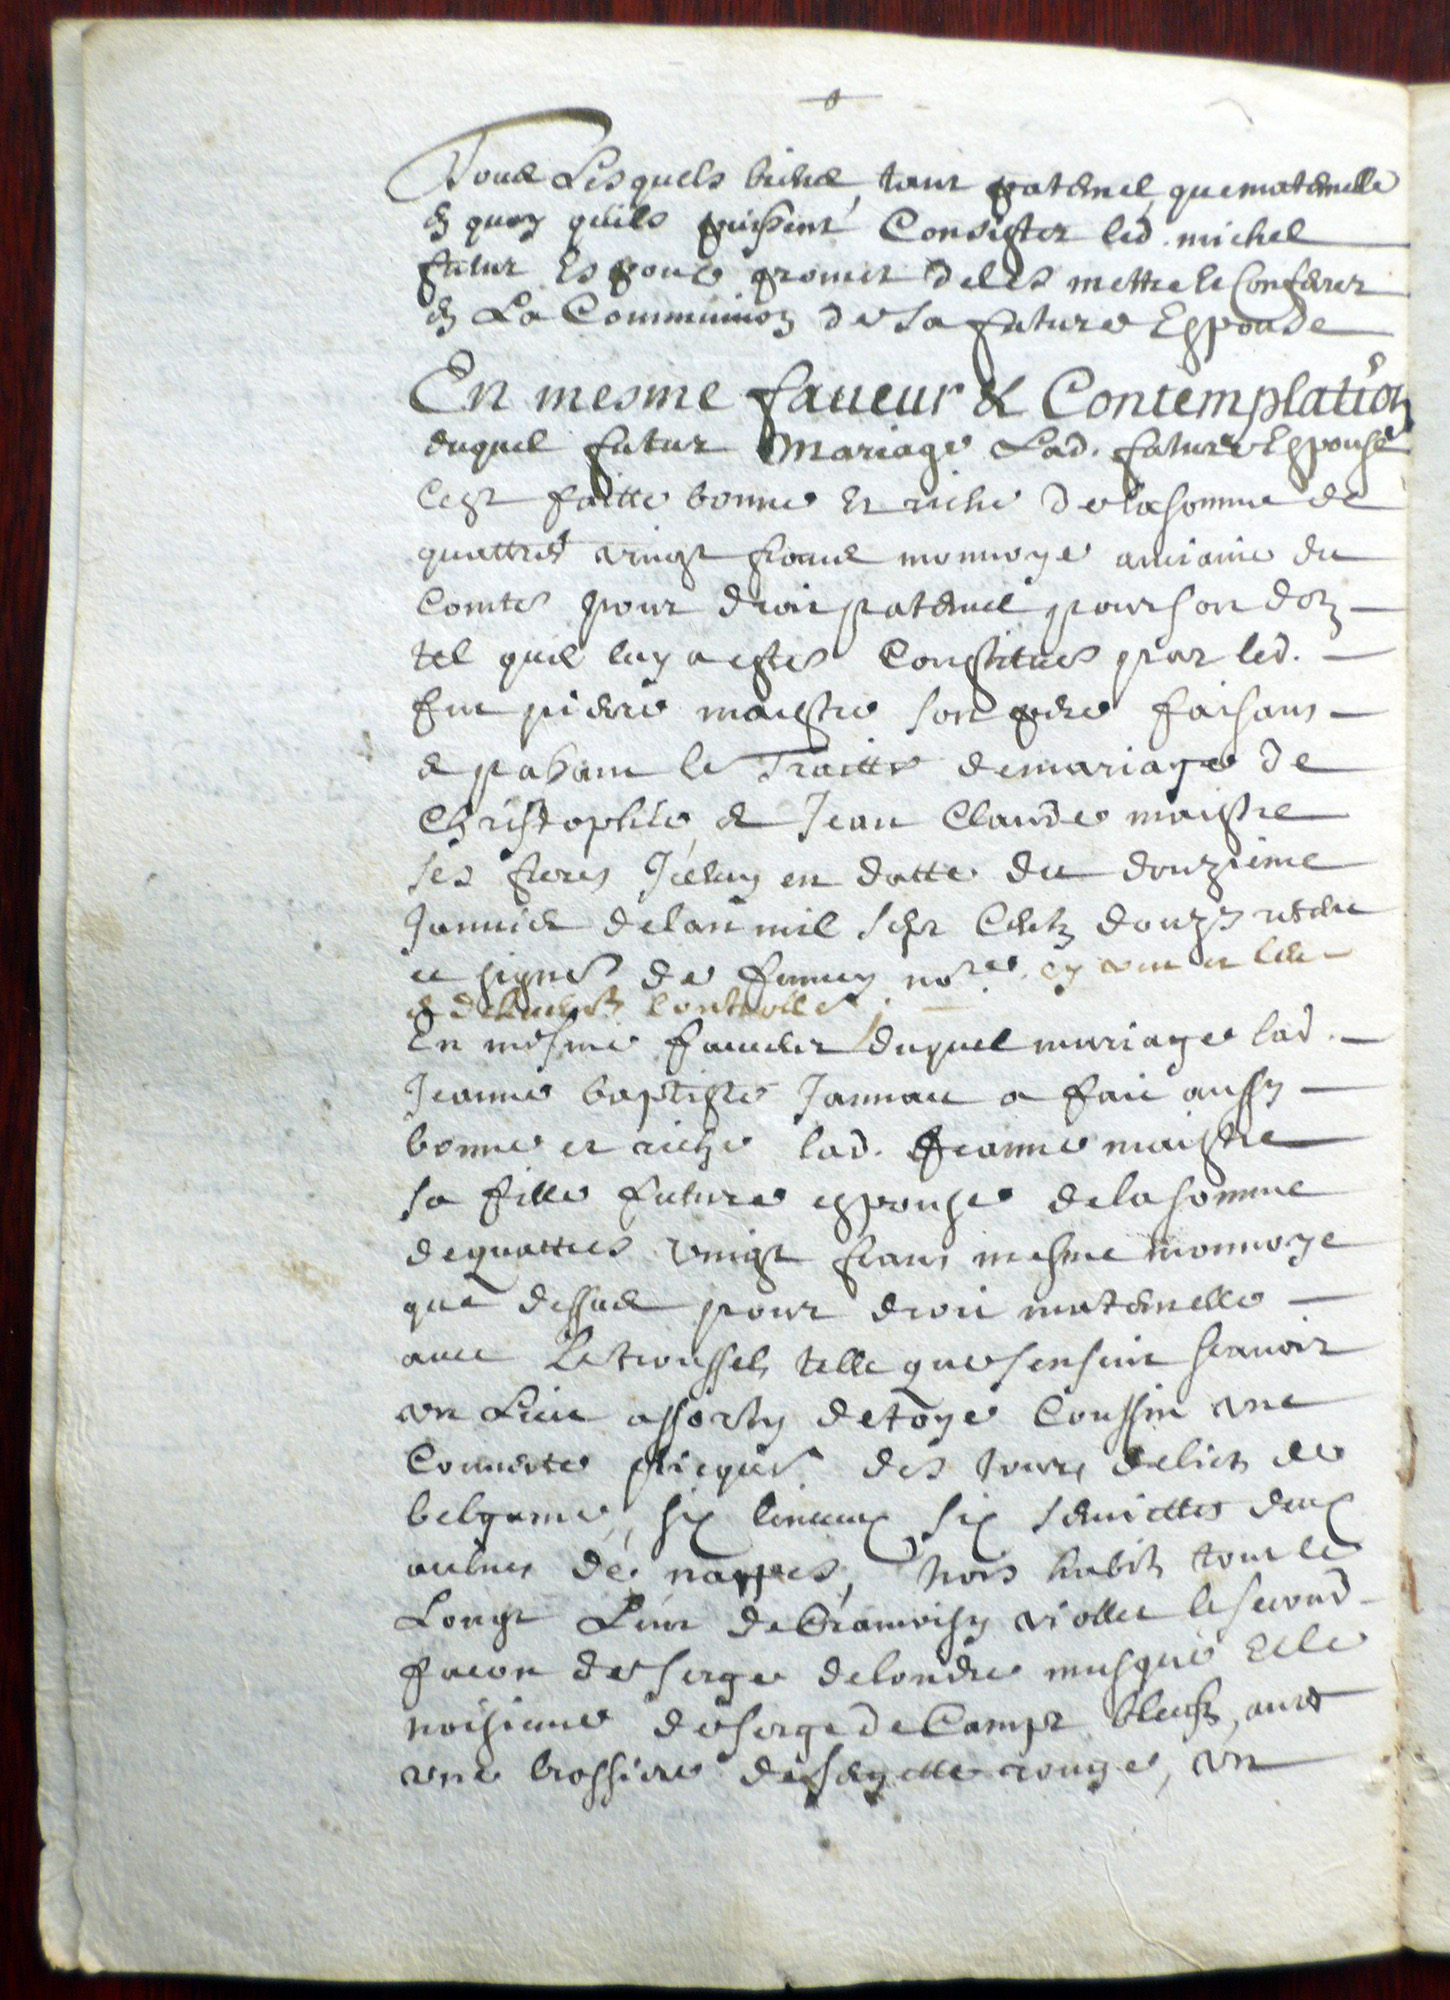 Tous Lesquels biens, tant paternel, que maternelle
en quoy quils puissent Consister led. michel
futur Espoux promet de les mettre et Conferer
en La Communion de sa future Espouse
En mesme faueur & Contemplation
duquel futur Mariage Lad. future Espouse
cest faitte bonne et riche de la somme de
quattres vingt francs monnoye ancienne du
Comtes pour droit paternel pour son don
tel quil luy a estes Constitues par led.
fut pierre maistre son pere faisans
& passant le Traitte de mariage de
Christophle & Jean Claude maistre
ses freres Iceluy en datte du douzieme
Januier de lan mil sept Cents douze receu
et signes de not.re cy veu et leu
et deheument Controlle;
En mesme faueur duquel mariage lad.
Jeanne baptiste Jannau a fait aussy
bonne et riche lad. Jeanne maistre
sa fille future espouse de la somme
de quattres vingt francs mesme monnoye
que dessus pour droit maternelle
auec Le troussels telle que sensuit scauoir
vn Lict assorty de toye Coussin vne
Couuerte picque des tours de licts de
belgame, six linceux six seruiettes deux
aulnes de nappes, trois habits tout le
Longt Lun de Cramoisy viollet le second
facon de serge de londre musque Et le
troisieme de serge de Camps bleufs, auec
vne brossiere de seyette rouge, vn